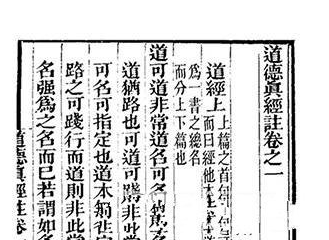 道德眞經註卷之一
道經上
上篇之首
而曰經他本
為一書之總名
而分上下篇也
道可道非常道名可名
道猶路也可道可
可名可指定也道本
路之可踐行而道則非此常
名强為之名而已若謂如名
道德眞經註卷